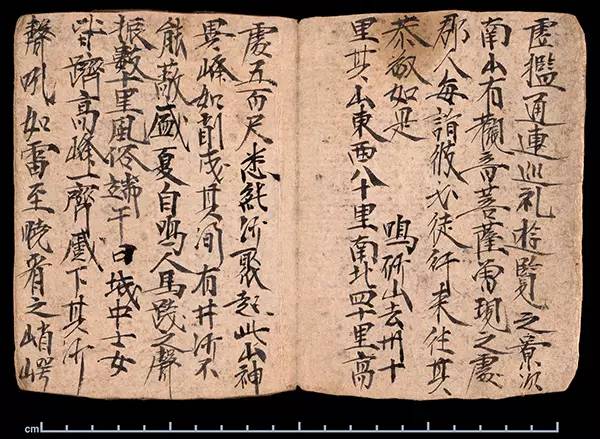 虛檻通連巡礼遊覽之景次
南山有觀音菩薩曾現之處
郡人每詣彼必徒行來往其
恭敬如是　鳴沙山去州十
里其山東西八十里南北四十里高
處五百尺悉純沙聚起此山神
異峰如削成其間有井沙不
能蔽盛夏自鳴人馬踐之聲
振數十里風俗端午日城中士女
皆躋高峰一齊蹙下其沙
聲吼如雷至曉看之峭崿
cm